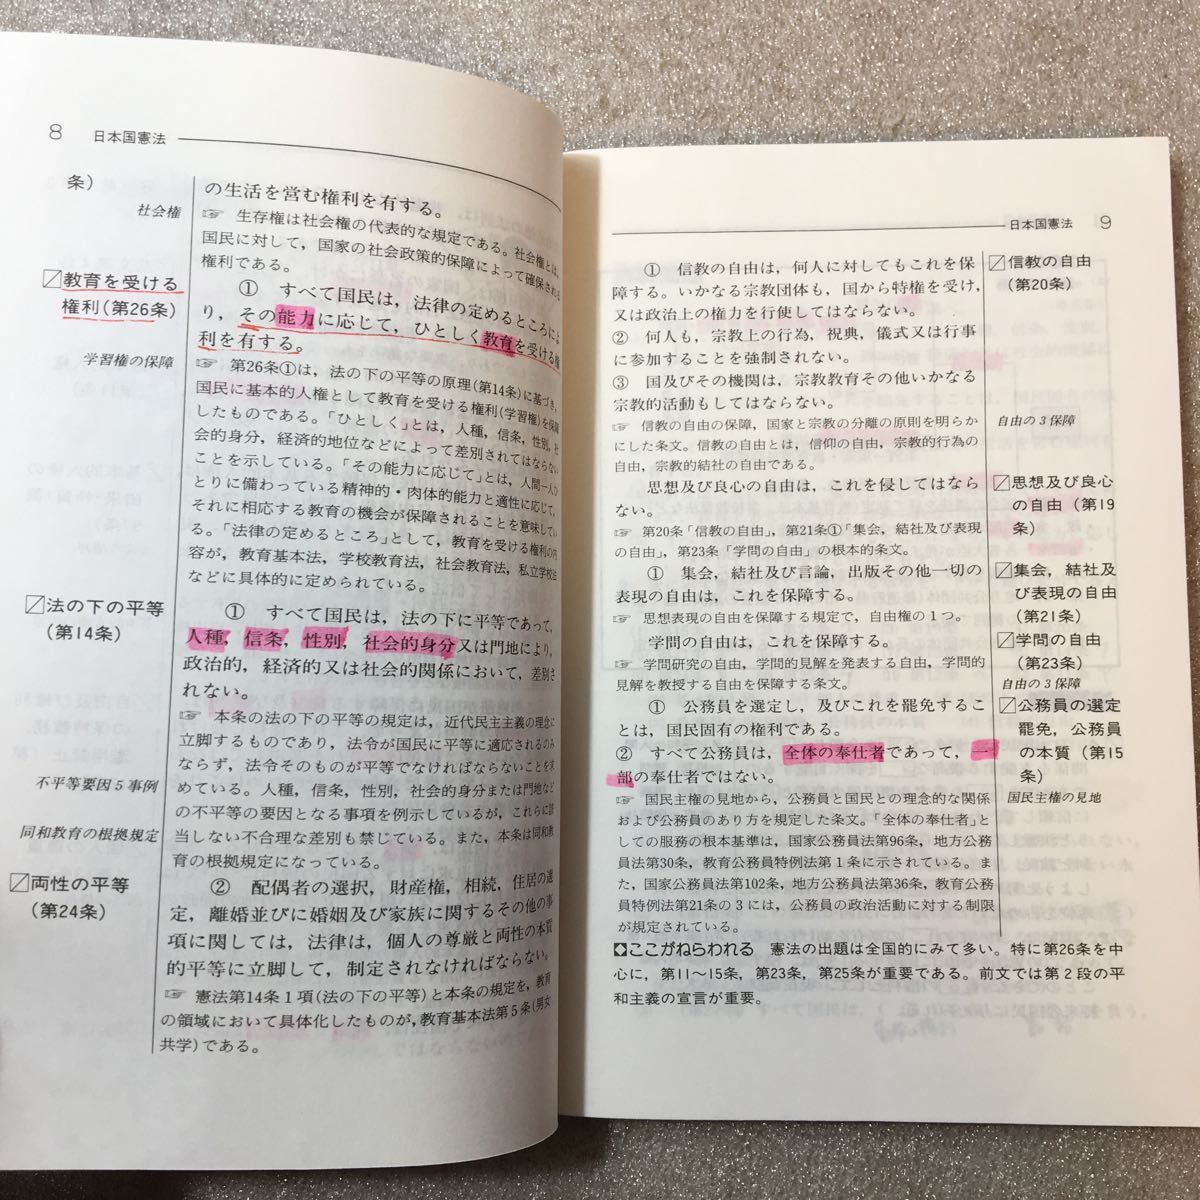 8 日本国憲法
条)
社会権
の生活を営む権利を有する。
☞ 生存権は社会権の代表的な規定である。社会権とは,
国民に対して，国家の社会政策的保障によって確保される
権利である。
教育を受ける
権利(第26条)
① すべて国民は，法律の定めるところによ
り，その能力に応じて，ひとしく教育を受ける権
利を有する。
学習権の保障
☞ 第26条①は，法の下の平等の原理(第14条)に基づき，
国民に基本的人権として教育を受ける権利(学習権)を保障
したものである。「ひとしく」とは，人種，信条，性別，社
会的身分，経済的地位などによって差別されてはならない
ことを示している。「その能力に応じて」とは，人間一人ひ
とりに備わっている精神的・肉体的能力と適性に応じて，
それに相応する教育の機会が保障されることを意味してい
る。「法律の定めるところ」として，教育を受ける権利の内
容が，教育基本法，学校教育法，社会教育法，私立学校法
などに具体的に定められている。
法の下の平等
(第14条)
① すべて国民は，法の下に平等であって，
人種，信条，性別，社会的身分又は門地により，
政治的，経済的又は社会的関係において，差別さ
れない。
☞ 本条の法の下の平等の規定は，近代民主主義の理念に
立脚するものであり，法令が国民に平等に適応されるのみ
ならず，法令そのものが平等でなければならないことを求
めている。人種，信条，性別，社会的身分または門地など
の不平等の要因となる事項を例示しているが，これらに該
当しない不合理な差別も禁じている。また，本条は同和教
育の根拠規定になっている。
不平等要因5事例
同和教育の根拠規定
両性の平等
(第24条)
② 配偶者の選択，財産権，相続，住居の選
定，離婚並びに婚姻及び家族に関するその他の事
項に関しては，法律は，個人の尊厳と両性の本質
的平等に立脚して，制定されなければならない。
☞ 憲法第14条1項(法の下の平等)と本条の規定を，教育
の領域において具体化したものが，教育基本法第5条(男女
共学)である。
日本国憲法 9
① 信教の自由は，何人に対してもこれを保
障する。いかなる宗教団体も，国から特権を受け，
又は政治上の権力を行使してはならない。
② 何人も，宗教上の行為，祝典，儀式又は行事
に参加することを強制されない。
③ 国及びその機関は，宗教教育その他いかなる
宗教的活動もしてはならない。
☞ 信教の自由の保障，国家と宗教の分離の原則を明らか
にした条文。信教の自由とは，信仰の自由，宗教的行為の
自由，宗教的結社の自由である。
信教の自由
(第20条)
自由の3保障
思想及び良心の自由は，これを侵してはなら
ない。
☞ 第20条「信教の自由」，第21条①「集会，結社及び表現
の自由」，第23条「学問の自由」の根本的条文。
思想及び良心
の自由（第19
条）
① 集会，結社及び言論，出版その他一切の
表現の自由は，これを保障する。
☞ 思想表現の自由を保障する規定で，自由権の1つ。
集会，結社及
び表現の自由
(第21条)
学問の自由は，これを保障する。
☞ 学問研究の自由，学問的見解を発表する自由，学問的
見解を教授する自由を保障する条文。
学問の自由
(第23条)
自由の3保障
① 公務員を選定し，及びこれを罷免するこ
とは，国民固有の権利である。
② すべて公務員は，全体の奉仕者であって，一
部の奉仕者ではない。
☞ 国民主権の見地から，公務員と国民との理念的な関係
および公務員のあり方を規定した条文。「全体の奉仕者」と
しての服務の根本基準は，国家公務員法第96条，地方公務
員法第30条，教育公務員特例法第1条に示されている。ま
た，国家公務員法第102条，地方公務員法第36条，教育公務
員特例法第21条の3には，公務員の政治活動に対する制限
が規定されている。
公務員の選定
罷免，公務員
の本質（第15
条）
国民主権の見地
ここがねらわれる 憲法の出題は全国的にみて多い。特に第26条を中
心に，第11〜15条，第23条，第25条が重要である。前文では第2段の平
和主義の宣言が重要。